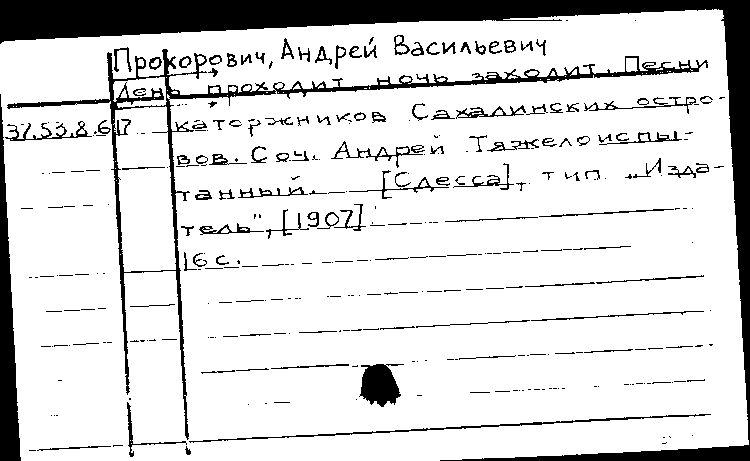 Прокорович, Андрей Васильевич
День проходит ночь заходит. Песни
37.53.8.617 каторжников Сахалинских остро-
вов. Соч. Андрей Тяжелоиспы-
танный. [Одесса], тип. „Изда-
тель", [1907].
16 с.